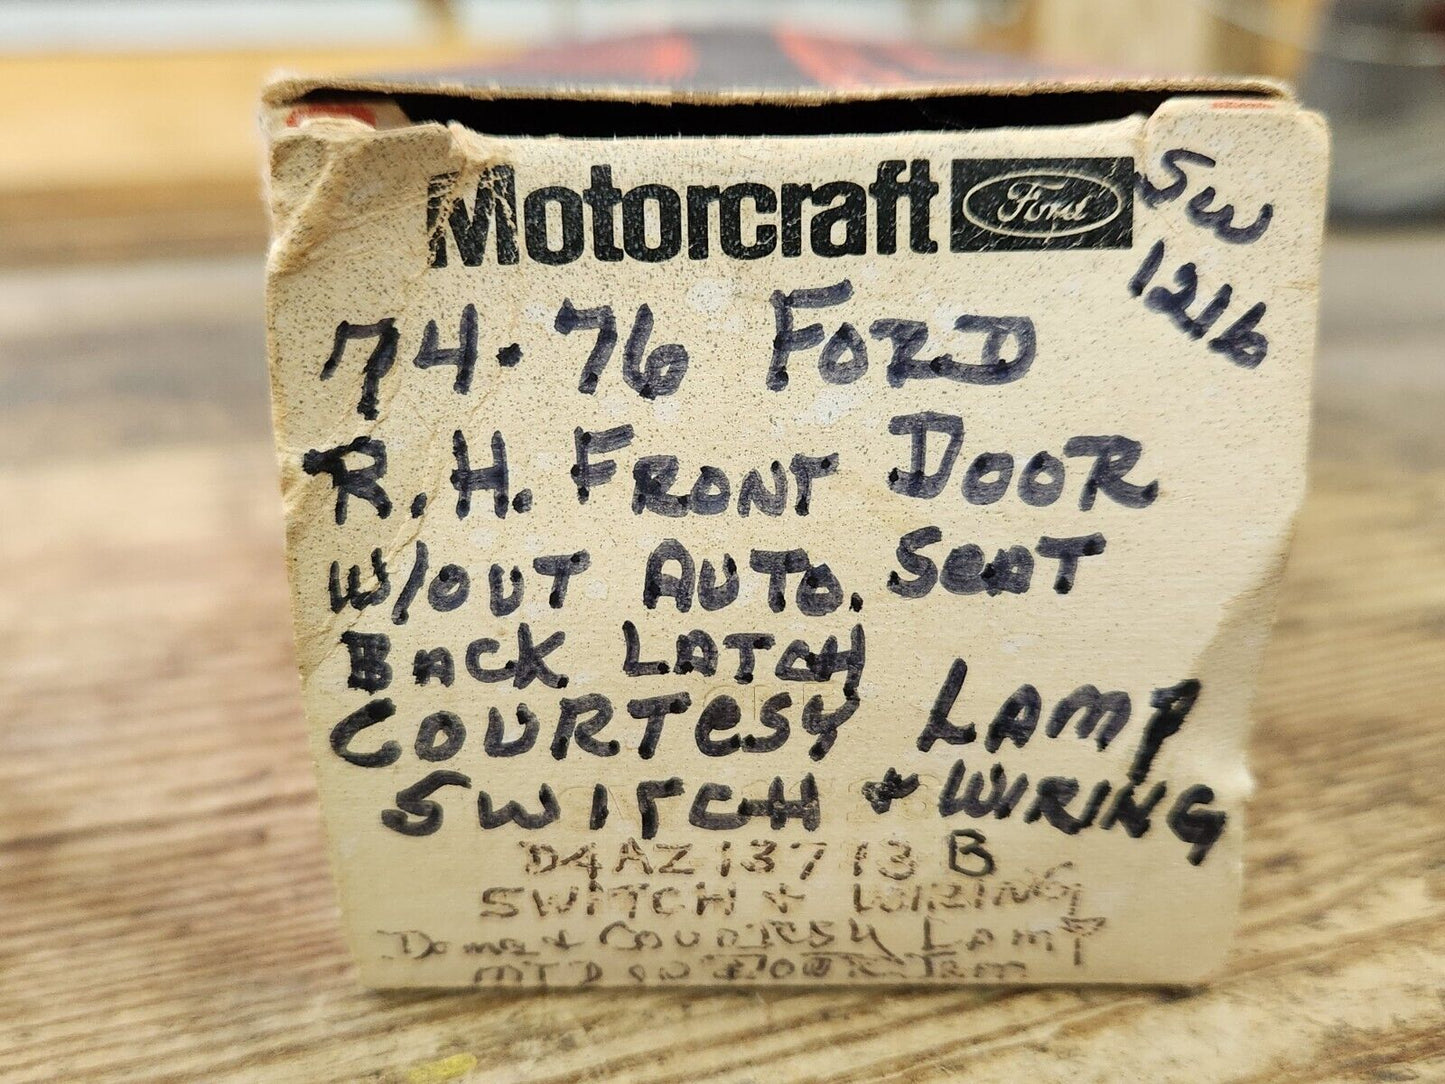 Motorcraft Ford
SW
1216
74-76 FORD
R.H. FRONT DOOR
W/OUT AUTO. SEAT
BACK LATCH
COURTESY LAMP
SWITCH & WIRING
D4AZ 13713 B
SWITCH & WIRING
Dome & COURTESY LAMP
MTD ON DOOR Trm